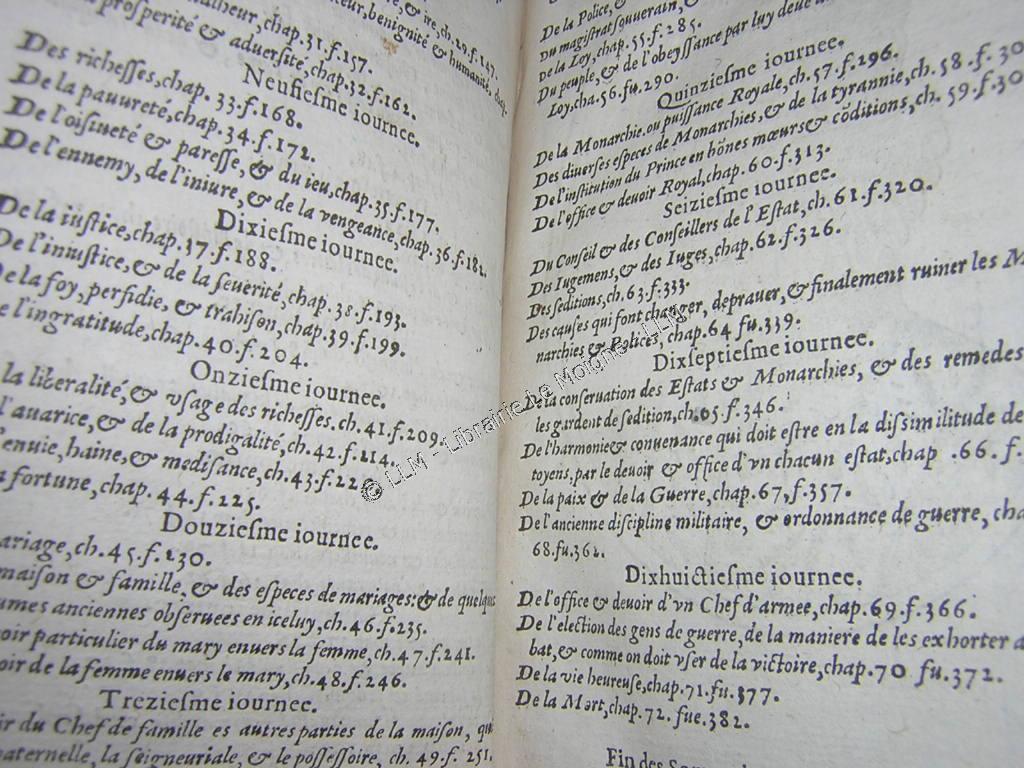 alheur, chap. 31. f. 157.
prosperité & aduersité, chap. 32. f. 162.
Neufiesme iournee.
Des richesses, chap. 33. f. 168.
De la pauureté, chap. 34. f. 172.
De l'oisiueté & paresse, & du ieu, chap. 35. f. 177.
De l'ennemy, de l'iniure, & de la vengeance, chap. 36. f. 182.
Dixiesme iournee.
De la iustice, chap. 37. f. 188.
De l'iniustice, & de la seuerité, chap. 38. f. 193.
De la foy, perfidie, & trahison, chap. 39. f. 199.
e l'ingratitude, chap. 40. f. 204.
Onziesme iournee.
la liberalité, & vsage des richesses. ch. 41. f. 209.
l'auarice, & de la prodigalité, ch. 42. f. 214.
'enuie, haine, & medisance, ch. 43. f. 220
a fortune, chap. 44. f. 225.
Douziesme iournee.
ariage, ch. 45. f. 230.
maison & famille, & des especes de mariages: & de quelque
umes anciennes obseruees en iceluy, ch. 46. f. 235.
oir particulier du mary enuers la femme, ch. 47. f. 241.
oir de la femme enuers le mary, ch. 48. f. 246.
Treziesme iournee.
ir du Chef de famille es autres parties de la maison, qui
aternelle, la seigneuriale, & le possessoire, ch. 49. f. 251.
& ire, ch. 29. f. 147.
eur, benignité & humanité, chap.
De la Police, &
Du magistrat souuerain, &
De la Loy, chap. 55. f. 285.
Du peuple, & de l'obeyssance par luy deue
Loy, cha. 56. fu. 290.
Quinziesme iournee.
De la Monarchie, ou puissance Royale, ch. 57. f. 296.
Des diuerses especes de Monarchies, & de la tyrannie, ch. 58. f. 30
De l'institution du Prince en bōnes mœurs & cōditions, ch. 59. f. 30
De l'office & deuoir Royal, chap. 60. f. 313.
Seiziesme iournee.
Du Conseil & des Conseillers de l'Estat, ch. 61. f. 320.
Des Iugemens, & des Iuges, chap. 62. f. 326.
Des seditions, ch. 63. f. 333.
Des causes qui font changer, deprauer, & finalement ruiner les M
narchies & Polices, chap. 64 fu. 339.
Dixseptiesme iournee.
De la conseruation des Estats & Monarchies, & des remedes
les gardent de sedition, ch. 65. f. 346.
De l'harmonie & conuenance qui doit estre en la dissimilitude de
toyens, par le deuoir & office d'vn chacun estat, chap. 66. f.
De la paix & de la Guerre, chap. 67, f. 357.
De l'ancienne discipline militaire, & ordonnance de guerre, cha
68. fu. 362.
Dixhuictiesme iournee.
De l'office & deuoir d'vn Chef d'armee, chap. 69. f. 366.
De l'election des gens de guerre, de la maniere de les exhorter a
bat, & comme on doit vser de la victoire, chap. 70 fu. 372.
De la vie heureuse, chap. 71. fu. 377.
De la Mort, chap. 72. fue. 382.
Fin des
© LLM - Librairie Le Moigne - LLM